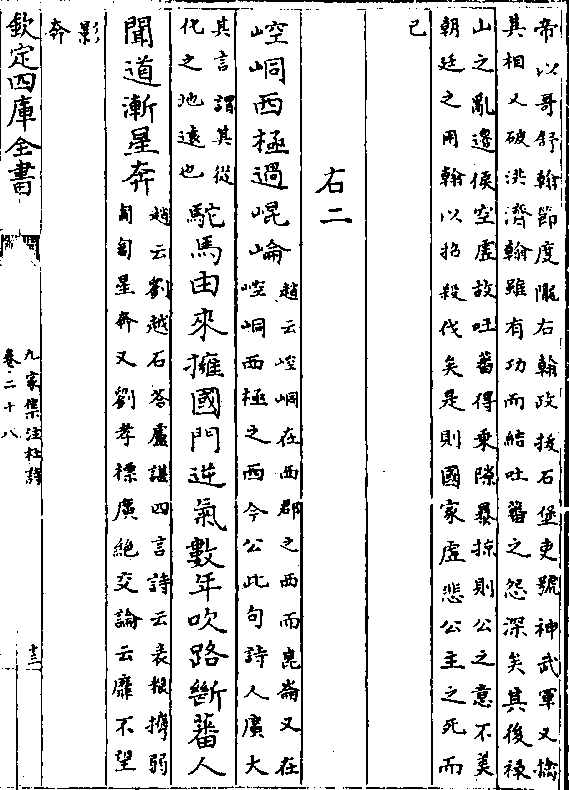 帝以哥舒翰節度隴右翰政拔石堡更號神武軍又擒
其相又破洪濟翰雖有功而結吐蕃之怨深矣其後祿
山之亂邊候空虛故吐蕃得乘隙暴掠則公之意不美
朝廷之用翰以招殺伐矣是則國家虛悲公主之死而
已
右二
崆峒西極過崐崘
趙云崆峒在西郡之西而崑崙又在
崆峒西極之西今公此句詩人廣大
其言謂其從
化之地遠也
駝馬由來擁國門逆氣數年吹路斷蕃人
聞道漸星奔
趙云劉越石答盧諶四言詩云表根擕弱
匍匐星奔又劉孝標廣絶交論云靡不望
影
奔
欽定四庫全書
九家集注杜詩
卷二十八
十三